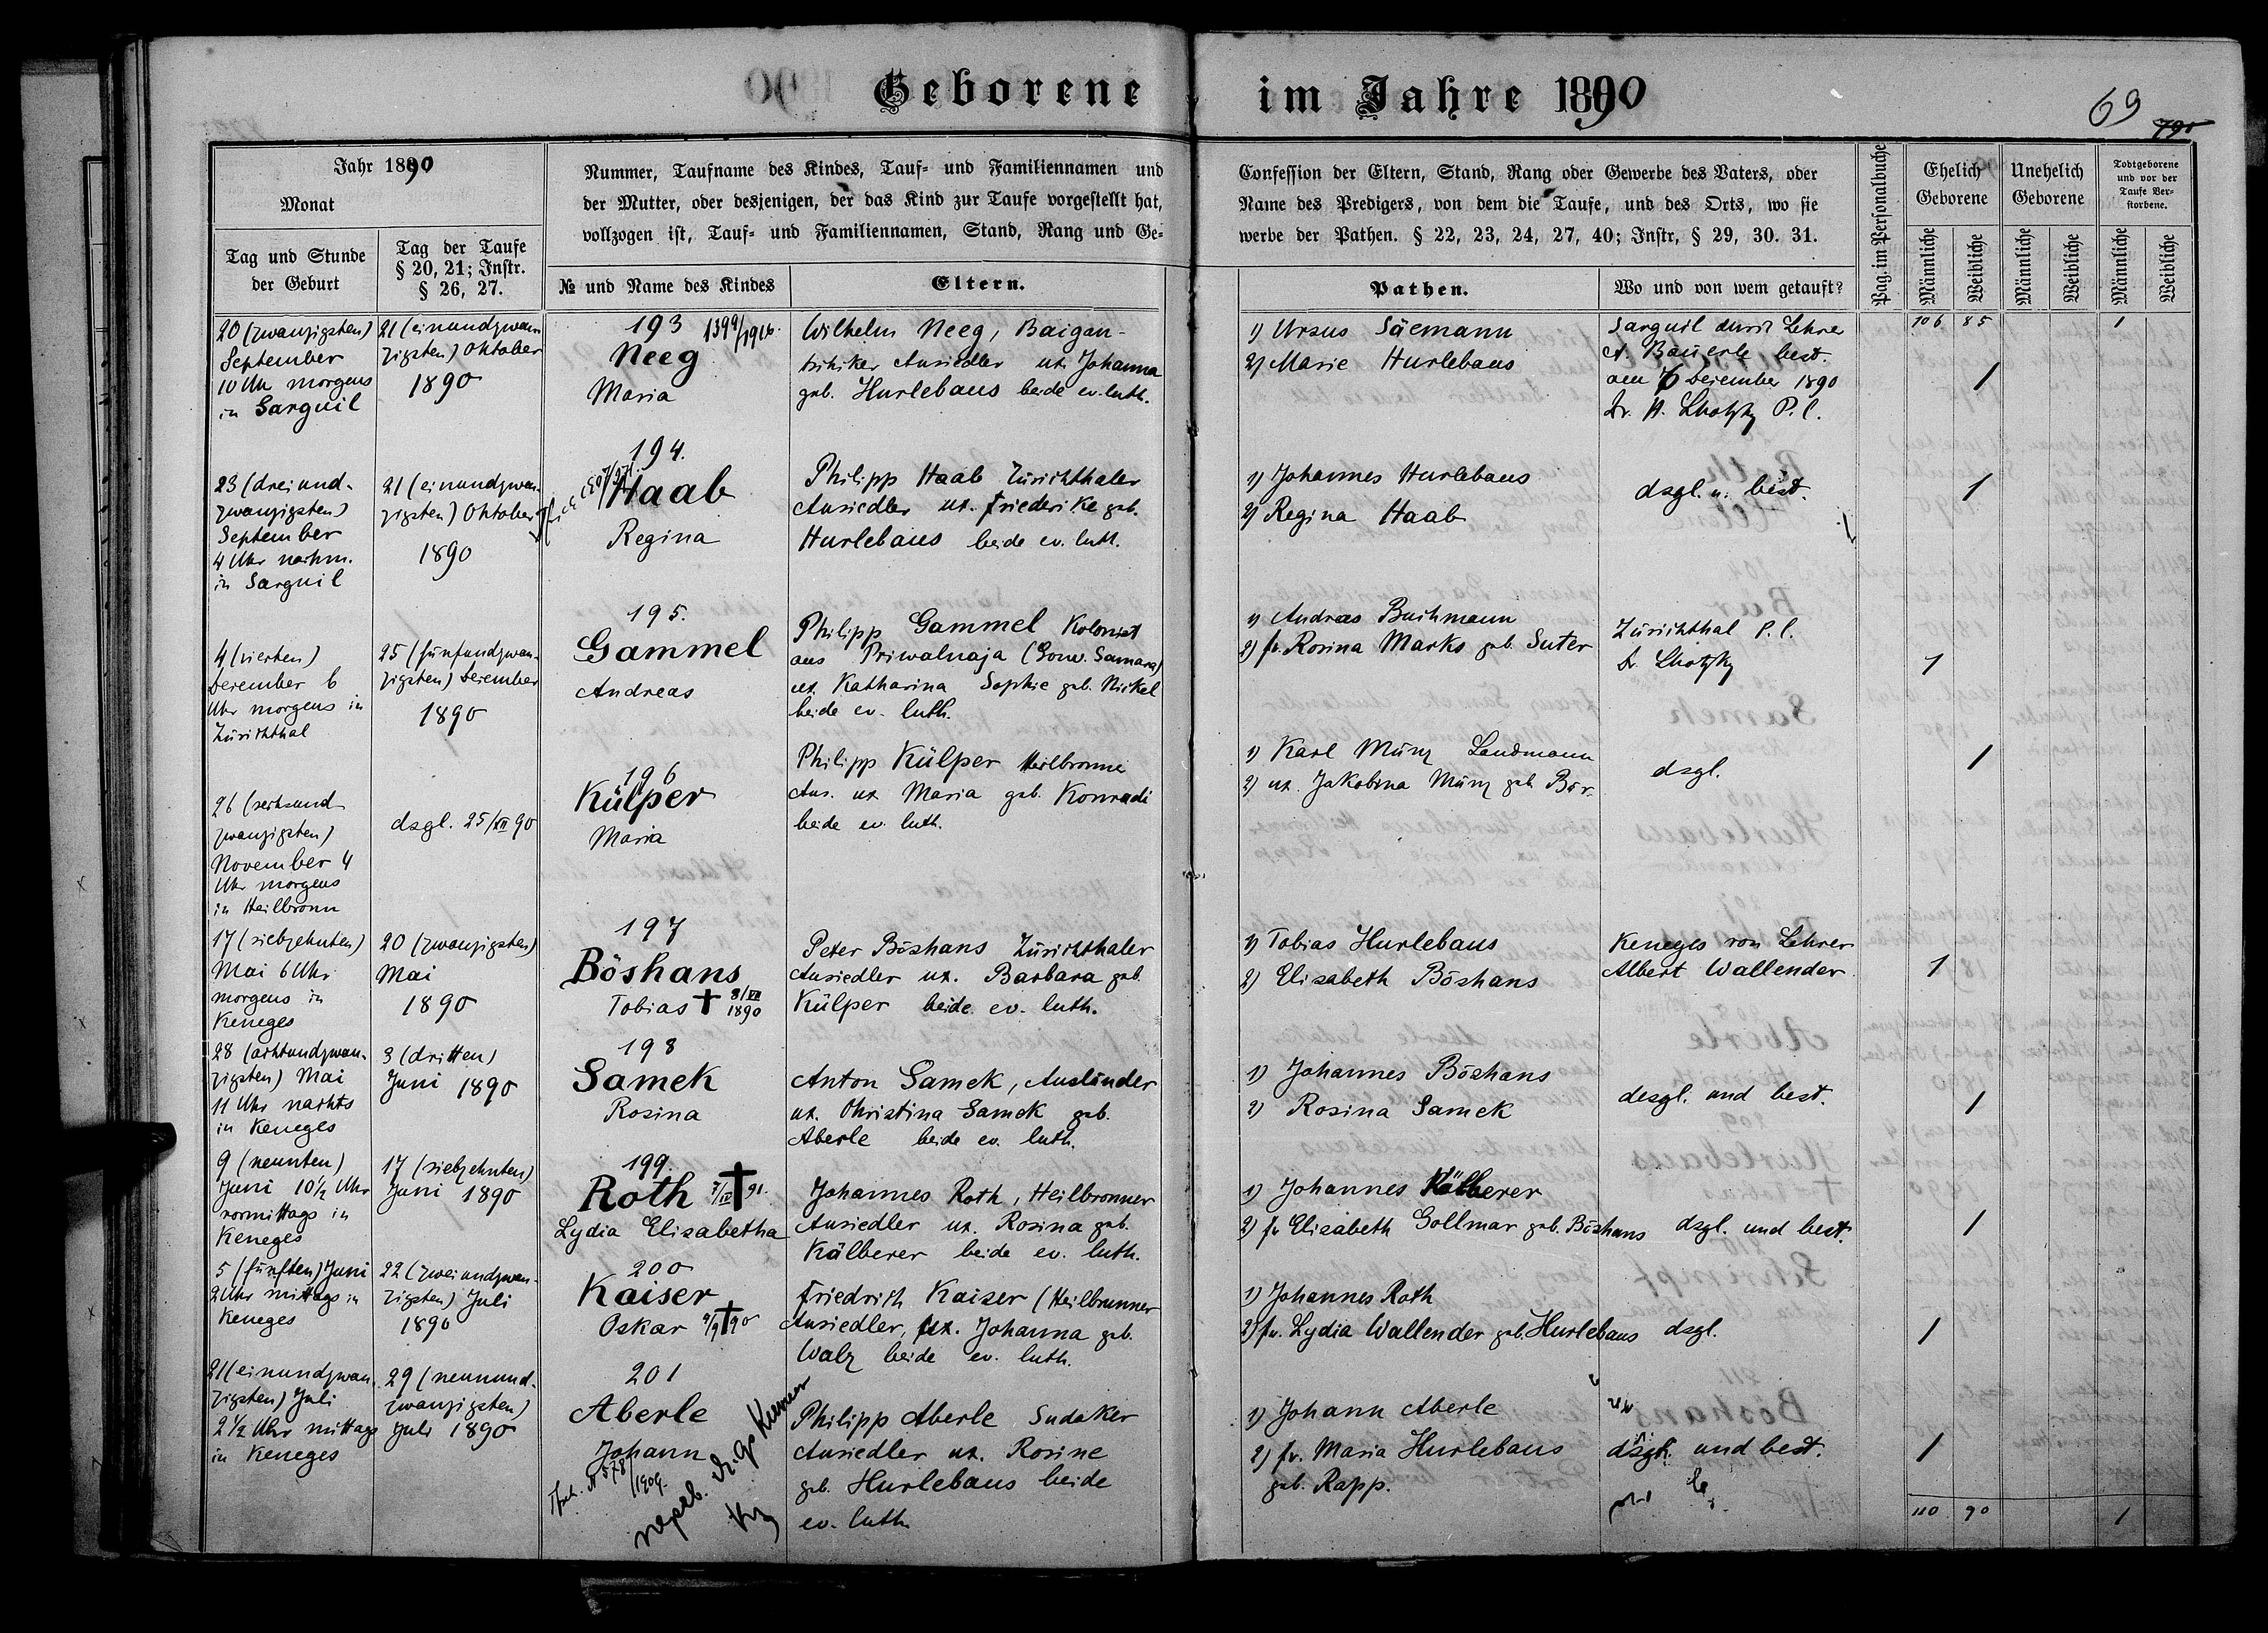 Geborene im Jahre 1890
69
Jahr 1890
Monat
Tag und Stunde
der Geburt
Tag der Taufe
§ 20, 21; Instr.
§ 26, 27.
Nummer, Taufname des Kindes, Tauf- und Familiennamen und
der Mutter, oder desjenigen, der das Kind zur Taufe vorgestellt hat,
vollzogen ist, Tauf- und Familiennamen, Stand, Rang und Ge-
№ und Name des Kindes
Eltern.
Confession der Eltern, Stand, Rang oder Gewerbe des Vaters, oder
Name des Predigers, von dem die Taufe, und des Orts, wo sie
werbe der Pathen. § 22, 23, 24, 27, 40; Instr, § 29, 30. 31.
Pathen.
Wo und von wem getauft?
Pag. im Personalbuche
Ehelich
Geborene
Unehelich
Geborene
Todtgeborene
und vor der
Taufe Ver-
storbene.
Männliche
Weibliche
Männliche
Weibliche
Männliche
Weibliche
106 85 1
20 (zwanzigsten)
September
10 Uhr morgens
in Sarguil
21 (einundzwan-
zigsten) Oktober
1890
193
Neeg
Maria
Wilhelm Neeg, Baigan-
tschiker Ansiedler ux. Johanna
geb. Hurlebaus beide ev. luth.
1) Ursus Säemann
2) Marie Hurlebaus
Sarguil durch Lehrer
A. Bäuerle best.
am 6 Dezember 1890
Dr. H. Lhotzky P. l.
1
23 (dreiund-
zwanzigsten)
September
4 Uhr nachm.
in Sarguil
21 (einundzwan-
zigsten) Oktober
1890
194.
Haab
Regina
Philipp Haab Zürichthaler
Ansiedler ux. Friederike geb.
Hurlebaus beide ev. luth.
1) Johannes Hurlebaus
2) Regina Haab
dsgl. u. best.
1
4 (vierten)
Dezember 6
Uhr morgens in
Zürichthal
25 (fünfundzwan-
zigsten) Dezember
1890
195.
Gammel
Andreas
Philipp Gammel Kolonist
aus Priwalnaja (Gouv. Samara)
ux. Katharina Sophie geb. Nickel
beide ev. luth.
1) Andreas Buchmann
2) fr. Rosina Marks geb. Suter
Zürichthal P. l.
Dr. Lhotzky
1
26 (sechsund-
zwanzigsten)
November 4
Uhr morgens
in Heilbronn
dsgl. 25/XII 90
196
Külper
Maria
Philipp Külper Heilbronner
Ans. ux Maria geb. Konradi
beide ev. luth.
1) Karl Münz Landmann
2) ux. Jakobina Münz geb. Bär.
dsgl.
1
17 (siebzehnten)
Mai 6 Uhr
morgens in
Keneges
20 (zwanzigsten)
Mai
1890
197
Böshans
Tobias † 8/VII 1890
Peter Böshans Zürichthaler
Ansiedler ux. Barbara geb.
Külper beide ev. luth.
1) Tobias Hurlebaus
2) Elisabeth Böshans
Keneges von Lehrer
Albert Wallender
1
28 (achtundzwan-
zigsten) Mai
11 Uhr nachts
in Keneges
3 (dritten)
Juni 1890
198
Samek
Rosina
Anton Samek, Ausländer
ux. Christina Samek geb.
Aberle beide ev. luth.
1) Johannes Böshans
2) Rosina Samek
desgl. und best.
1
9 (neunten)
Juni 10½ Uhr
vormittags in
Keneges
17 (siebzehnten)
Juni 1890
199.
Roth † 91.
Lydia Elisabetha
Johannes Roth, Heilbronner
Ansiedler ux. Rosina geb.
Kälberer beide ev. luth.
1) Johannes Kälberer
2) fr Elisabeth Gollmar geb. Böshans
dsgl. und best.
1
5 (fünften) Juni
2 Uhr mittags in
Keneges
22 (zweiundzwan-
zigsten) Juli
1890
200
Kaiser
Oskar † 90
Friedrich Kaiser (Heilbrunner
Ansiedler, ux. Johanna geb.
Walz beide ev. luth.
1) Johannes Roth
2) fr. Lydia Wallender geb. Hurlebaus
dsgl.
1
21 (einundzwan-
zigsten) Juli
2½ Uhr mittags
in Keneges
29 (neunund-
zwanzigsten)
Juli 1890
201
Aberle
Johann
Philipp Aberle Sudaker
Ansiedler ux. Rosine
geb. Hurlebaus beide
ev. luth.
1) Johann Aberle
2) fr. Maria Hurlebaus
geb. Rapp.
dsgl. und best.
1
110 90 1